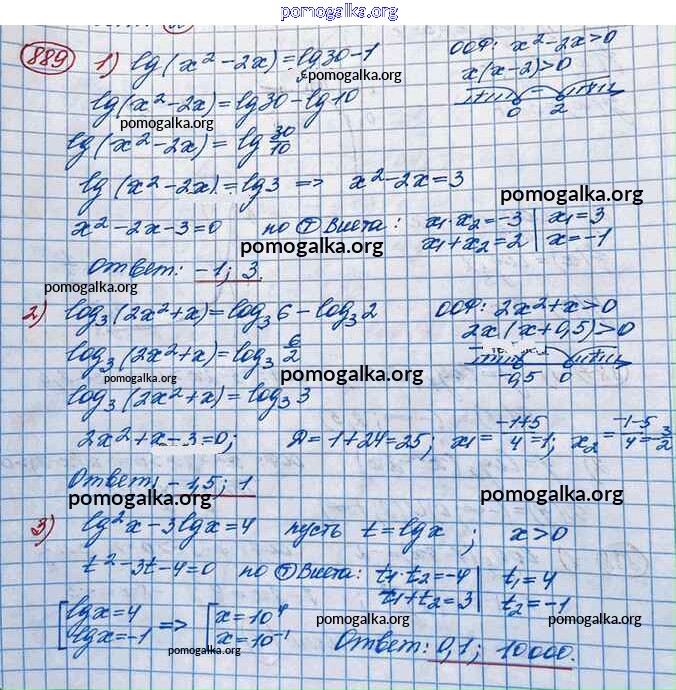 pomogalka.org
889 1) lg(x²-2x)=lg30-1 ООФ: x²-2x>0
pomogalka.org x(x-2)>0
lg(x²-2x)=lg30-lg10 0 2
pomogalka.org
lg(x²-2x)=lg 30/10
lg(x²-2x)=lg3 => x²-2x=3
pomogalka.org
x²-2x-3=0 по Т Виета: x₁·x₂=-3 | x₁=3
pomogalka.org x₁+x₂=2 | x=-1
Ответ: -1; 3.
pomogalka.org
2) log₃(2x²+x)=log₃6-log₃2 ООФ: 2x²+x>0
2x(x+0,5)>0
log₃(2x²+x)=log₃ 6/2 -0,5 0
pomogalka.org pomogalka.org
log₃(2x²+x)=log₃3
2x²+x-3=0; Д=1+24=25; x₁=(-1+5)/4=1; x₂=(-1-5)/4=-3/2
Ответ: -1,5; 1
pomogalka.org pomogalka.org
3) lg²x-3lgx=4 пусть t=lgx; x>0
t²-3t-4=0 по Т Виета: t₁·t₂=-4 | t₁=4
t₁+t₂=3 | t₂=-1
[lgx=4 => [x=10⁴
pomogalka.org pomogalka.org
lgx=-1 x=10⁻¹ Ответ: 0,1; 10000.
pomogalka.org